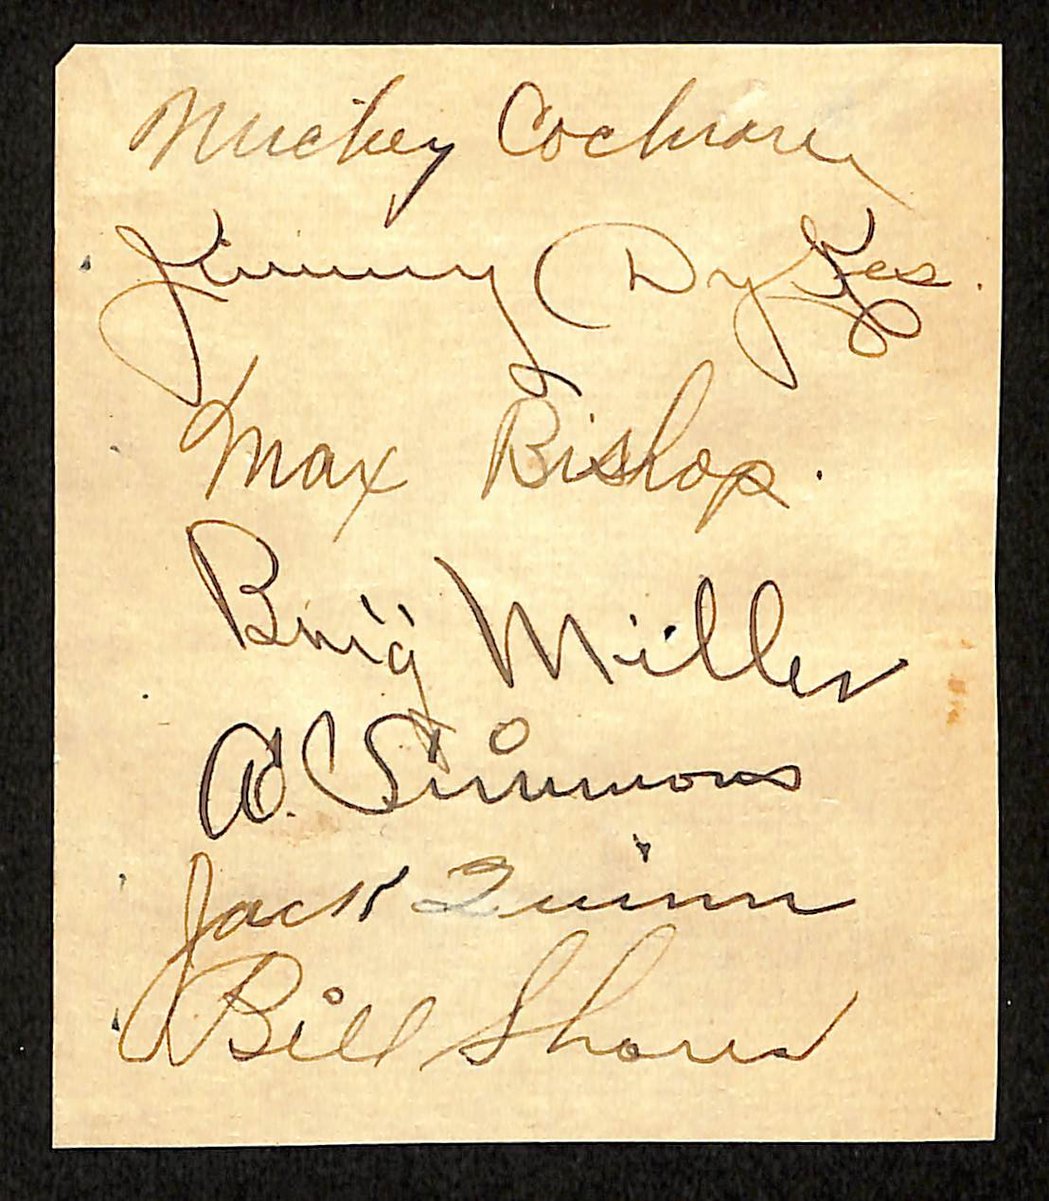 Mickey Cochrane
Jimmy Dykes.
Max Bishop.
Bing Miller
A. Simmons
Jack Quinn
Bill Shores